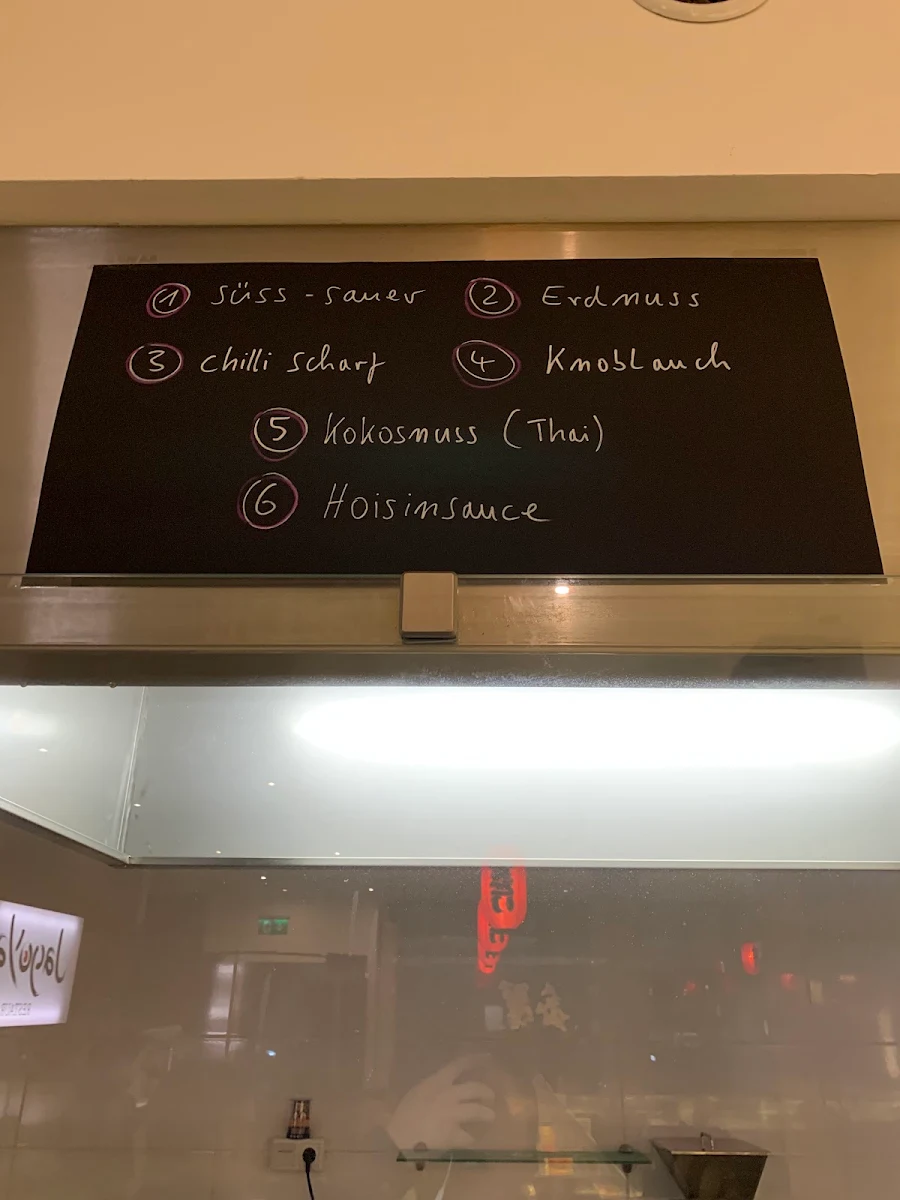 1 süss - sauer 2 Erdnuss
3 chilli scharf 4 Knoblauch
5 Kokosnuss (Thai)
6 Hoisinsauce